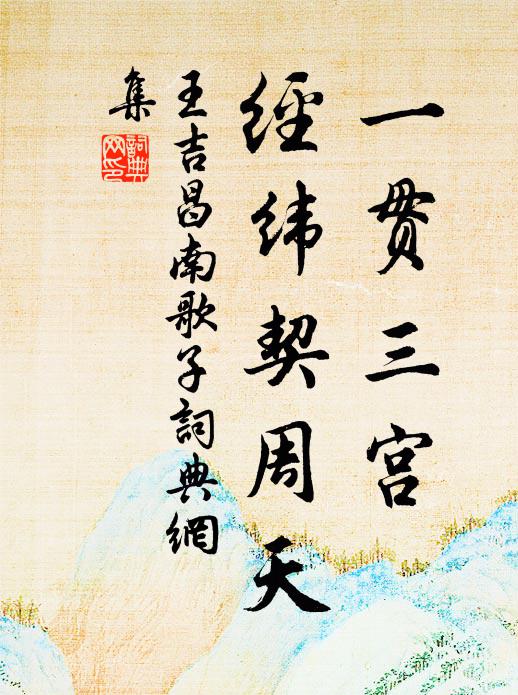 一贯三宫
經緯契周天
王吉昌南歌子詞典網
集
詞典
网印